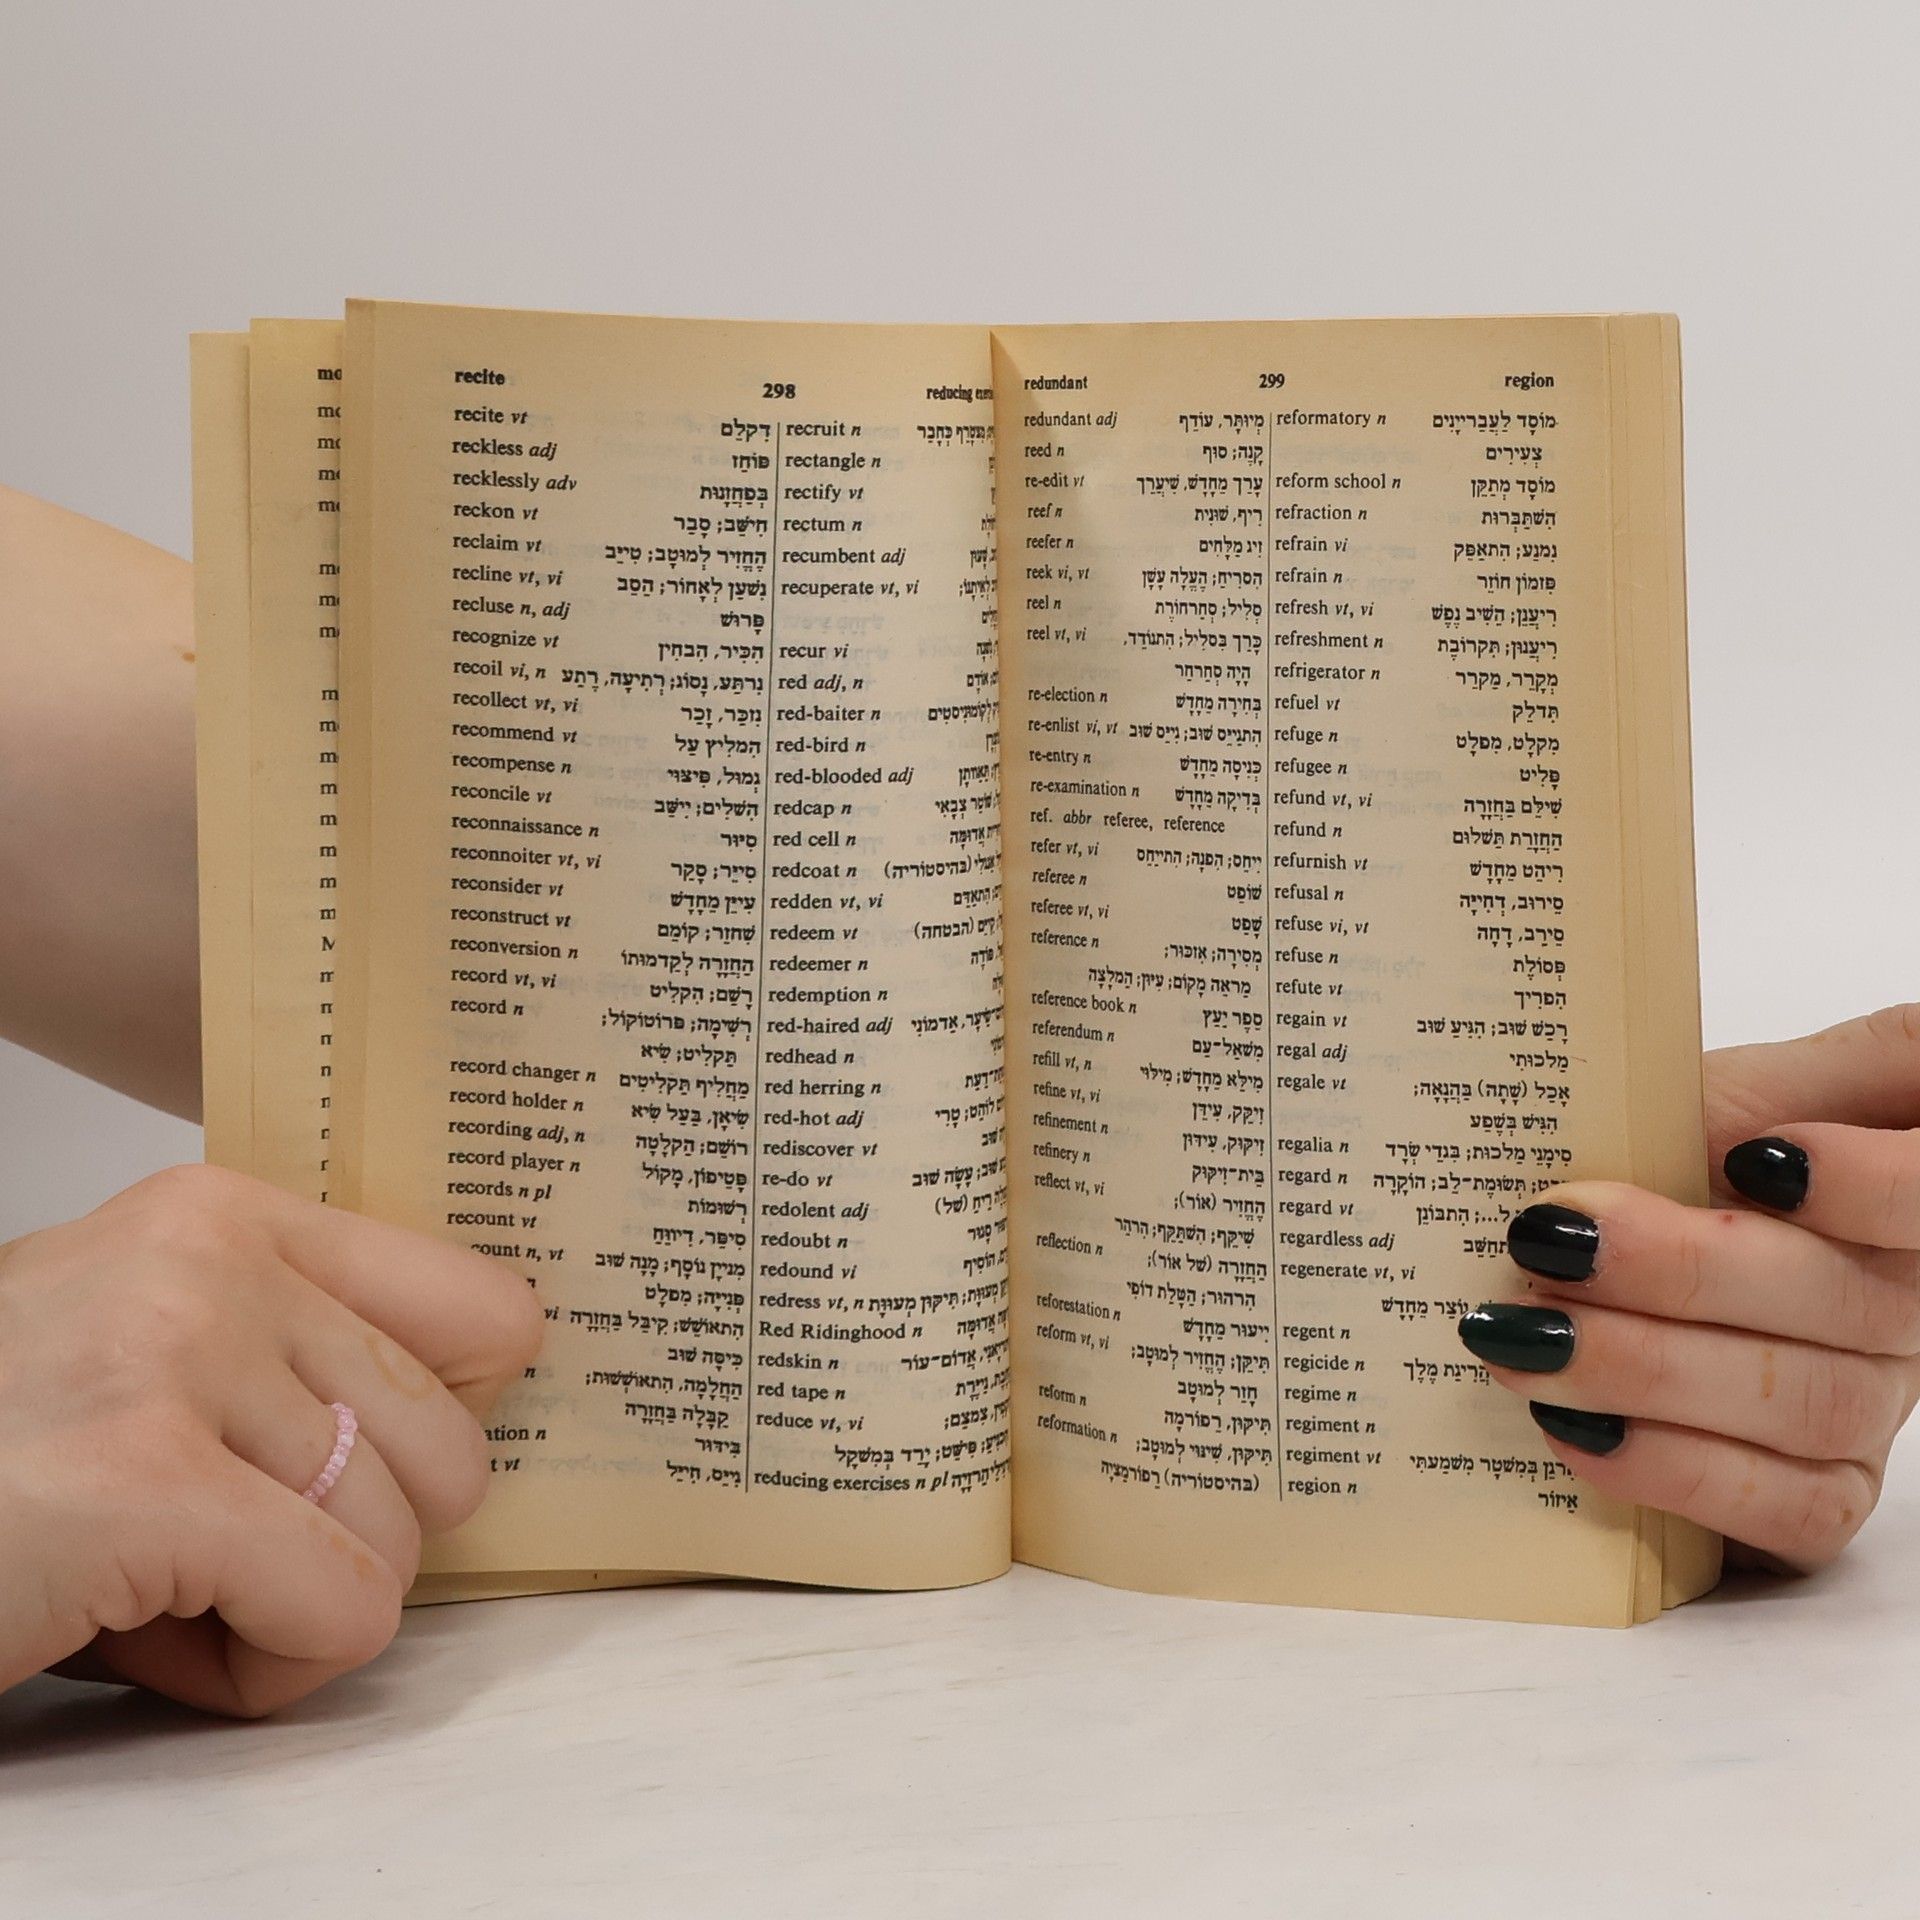 recite
298
reducing
recite vt דִקלֵם
reckless adj פּוֹחֵז
recklessly adv בְּפַחֲזָנוּת
reckon vt חִישֵּב; סָבַר
reclaim vt הֶחֱזִיר לְמוּטָב; טִייֵב
recline vt, vi נִשעַן לְאָחוֹר; הֵסֵב
recluse n, adj פָּרוּש
recognize vt הִכִּיר, הִבחִין
recoil vi, n נִרתַע, נָסוֹג; רְתִיעָה, רֶתַע
recollect vt, vi נִזכַּר, זָכַר
recommend vt הִמלִיץ עַל
recompense n גְמוּל, פִּיצוּי
reconcile vt הִשלִים; יִישֵּב
reconnaissance n סִיוּר
reconnoiter vt, vi סִייֵר; סָקַר
reconsider vt עִייֵן מֵחָדָש
reconstruct vt שִחזֵר; קוֹמֵם
reconversion n הַחזָרָה לְקַדמוּתוֹ
record vt, vi רָשַם; הִקלִיט
record n רְשִימָה; פּרוֹטוֹקוֹל;
תַקלִיט; שִׂיא
record changer n מַחֲלִיף תַּקלִיטִים
record holder n שִׂיאָן, בַּעַל שִׂיא
recording adj, n רוֹשֵם; הַקלָטָה
record player n פָּטֵיפוֹן, מָקוֹל
records n pl רְשוּמוֹת
recount vt סִיפֵּר, דִיווֵּחַ
count n, vt מִניָין נוֹסָף; מָנָה שוּב
n פְּנִייָה; מִפלָט
vi הִתאוֹשֵש; קִיבֵּל בַּחֲזָרָה
כִּיסָּה שוּב
n הַחלָמָה, הִתאוֹשְשוּת;
קַבָּלָה בַּחֲזָרָה
ation n בִּידוּר
t vt גִייֵס, חִייֵל
recruit n כְּחָבֵר
rectangle n
rectify vt
rectum n
recumbent adj
recuperate vt, vi
recur vi
red adj, n
red-baiter n
red-bird n
red-blooded adj
redcap n צְבָאִי
red cell n אֲדוּמָה
redcoat n (בְּהִיסטוֹריָה)
redden vt, vi הִתאַדֵם
redeem vt (הבטחה)
redeemer n פּוֹדֶה
redemption n
red-haired adj אַדמוֹנִי
redhead n
red herring n
red-hot adj לוֹהֵט; טָרִי
rediscover vt שוּב
re-do vt שוּב; עָשָׂה שוּב
redolent adj רֵיחַ (שֶל)
redoubt n סָגוּר
redound vi הוֹסִיף
redress vt, n תִּיקוּן מְעוּוָּת
Red Ridinghood n אֲדוּמָה
redskin n אֲדוֹם־עוֹר
red tape n
reduce vt, vi צִמצֵם;
פִּישֵט; יָרַד בְּמִשקָל
reducing exercises n pl
redundant
299
region
redundant adj מְיוּתָר, עוֹדֵף
reed n קָנֶה; סוּף
re-edit vt עָרַך מֵחָדָש, שִיעֲרֵך
reef n רִיף, שוּנִית
reefer n זִיג מַלָּחִים
reek vi, vt הִסרִיחַ; הֶעֱלָה עָשָן
reel n סְלִיל; סְחַרחוֹרֶת
reel vt, vi כָּרַך בִּסלִיל; הִתנוֹדֵד,
הָיָה סְחַרחַר
re-election n בְּחִירָה מֵחָדָש
re-enlist vi, vt הִתגַייֵס שוּב; גִייֵס שוּב
re-entry n כְּנִיסָה מֵחָדָש
re-examination n בְּדִיקָה מֵחָדָש
ref. abbr referee, reference
refer vt, vi יִיחֵס; הִפנָה; הִתייַחֵס
referee n שוֹפֵט
referee vt, vi שָפַט
reference n מְסִירָה; אִזכּוּר;
מַראֵה מָקוֹם; עִיוּן; הַמלָצָה
reference book n סֵפֶר יַעַץ
referendum n מִשאַל־עַם
refill vt, n מִילֵּא מֵחָדָש; מִילּוּי
refine vt, vi זִיקֵּק, עִידֵּן
refinement n זִיקּוּק, עִידּוּן
refinery n בֵּית־זִיקּוּק
reflect vt, vi הֶחֱזִיר (אוֹר);
שִיקֵּף; הִשתַּקֵּף; הִרהֵר
reflection n הַחזָרָה (שֶל אוֹר);
הִרהוּר; הַטָּלַת דוֹפִי
reforestation n יִיעוּר מֵחָדָש
reform vt, vi תִּיקֵּן; הֶחֱזִיר לְמוּטָב;
חָזַר לְמוּטָב
reform n תִּיקּוּן, רֵפוֹרמָה
reformation n תִּיקּוּן, שִינּוּי לְמוּטָב;
(בְּהִיסטוֹריָה) רֵפוֹרמַציָה
reformatory n מוֹסָד לַעֲבַרייָנִים
צְעִירִים
reform school n מוֹסָד מְתַקֵּן
refraction n הִשתַּבְּרוּת
refrain vi נִמנַע; הִתאַפֵּק
refrain n פִּזמוֹן חוֹזֵר
refresh vt, vi רִיעֲנֵן; הֵשִיב נֶפֶש
refreshment n רִיעֲנוּן; תִּקרוֹבֶת
refrigerator n מְקָרֵר, מַקרֵר
refuel vt תִּדלֵק
refuge n מִקלָט, מִפלָט
refugee n פָּלִיט
refund vt, vi שִילֵּם בַּחֲזָרָה
refund n הַחזָרַת תַּשלוּם
refurnish vt רִיהֵט מֵחָדָש
refusal n סֵירוּב, דְחִייָה
refuse vi, vt סֵירַב, דָחָה
refuse n פְּסוֹלֶת
refute vt הִפרִיך
regain vt רָכַש שוּב; הִגִּיעַ שוּב
regal adj מַלכוּתִי
regale vt אָכַל (שָתָה) בַּהֲנָאָה;
הִגִּיש בְּשֶפַע
regalia n סִימָנֵי מַלכוּת; בִּגדֵי שְׂרָד
regard n תְּשׂוּמֶת־לֵב; הוֹקָרָה
regard vt ל...; הִתבּוֹנֵן
regardless adj
regenerate vt, vi
נוֹצַר מֵחָדָש
regent n
regicide n הֲרִיגַת מֶלֶך
regime n
regiment n
regiment vt אִרגֵּן בְּמִשטָר מִשמַעתִּי
region n אֵיזוֹר